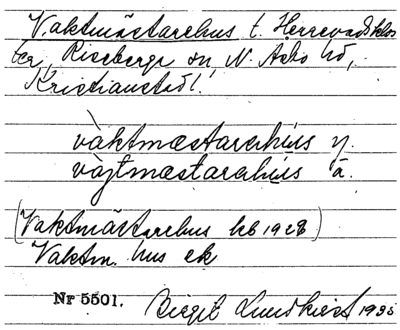 Vaktmästarehus t. Herrevadsklos
ter, Riseberga sn, N. Åsbo hd,
Kristianstad l.
vàktmæstarahùs y.
vàjtmæstarahùs ä.
(Vaktmästarehus kb 1928)
Vaktm. hus ek
Nr 5501. Birgit Lundkvist 1935